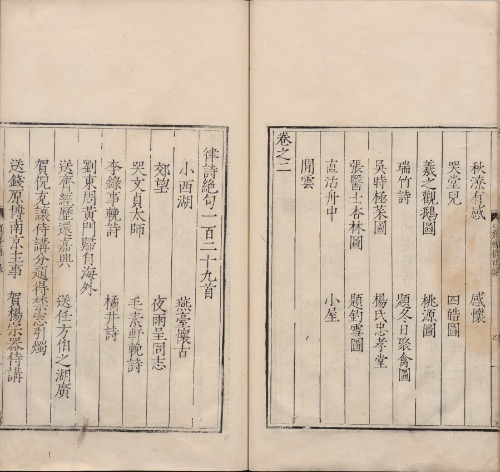 秋潦有感　感懷
哭堂兒　四皓圖
羲之觀鵝圖　桃源圖
瑞竹詩　題冬日聚禽圖
吳特極菜圖　楊氏忠孝堂
張醫士杏林圖　題釣雪圖
直沽舟中　小屋
閒雲
卷之二
律詩絕句一百二十九首
小西湖　燕臺懷古
郊望　夜雨呈同志
哭文貞太師　毛素軒輓詩
李錄事輓詩　橘井詩
劉東周黃門歸自海外
送齊經歷還嘉興　送任方伯之湖廣
賀倪克讓侍講分題得禁苑引燭
送錢原博南京主事　賀楊宗器侍講